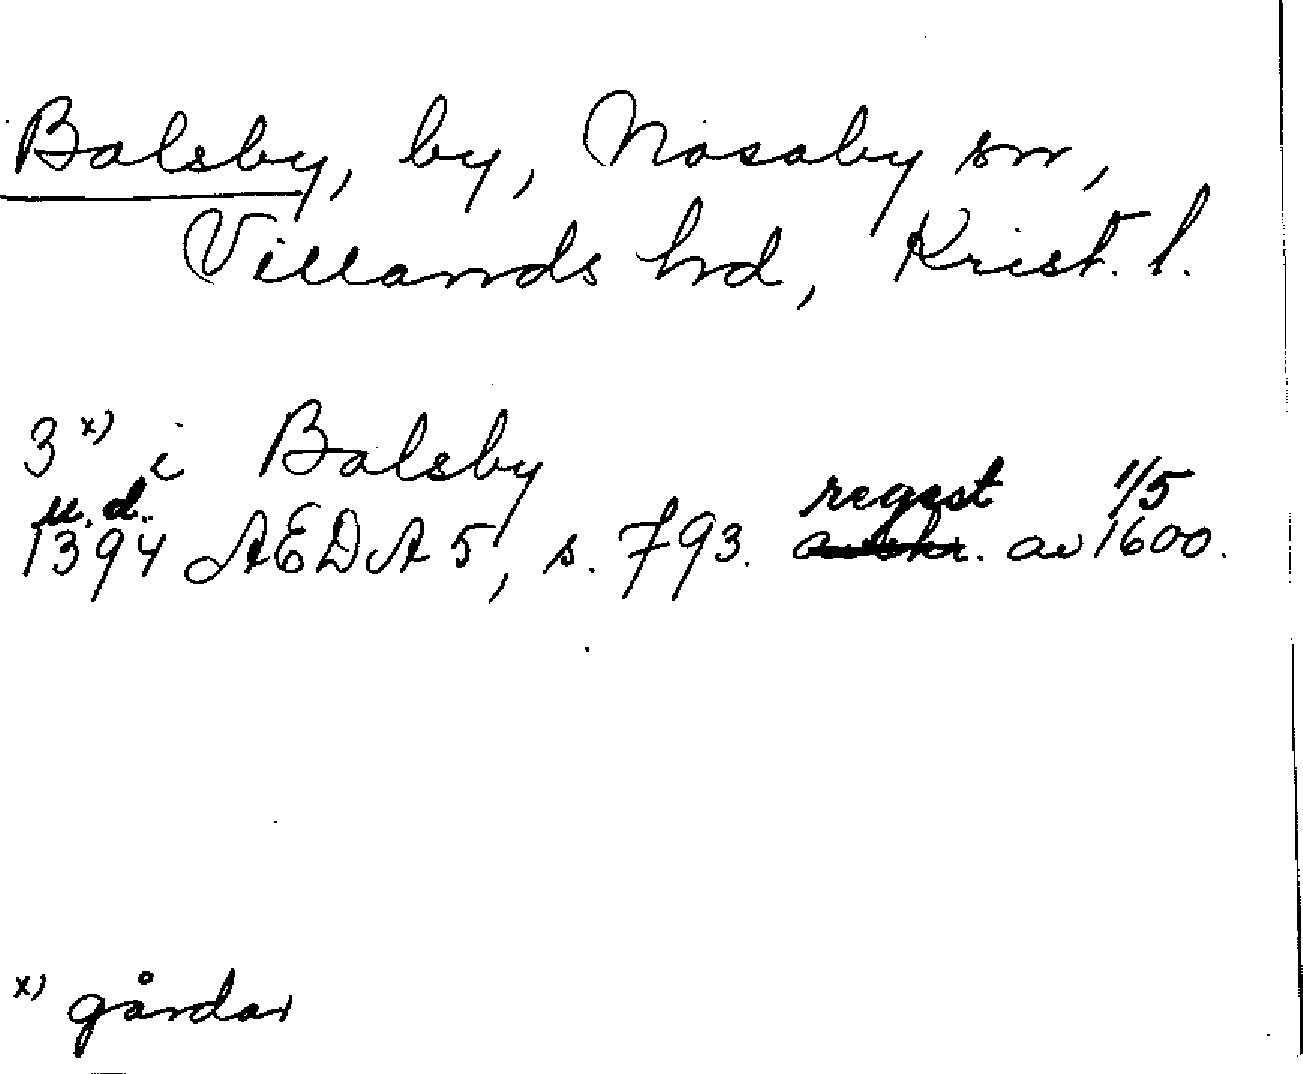 Balsby, by, Nosaby sn,
Villands hd, Krist. l.
3 x) i Balsby
u.d. regest 1/5
1394 AEDA 5, s. 793. avskr. av 1600.
x) gårdar